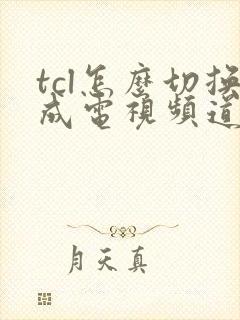 tcl怎麼切換
成電視頻道
月天真